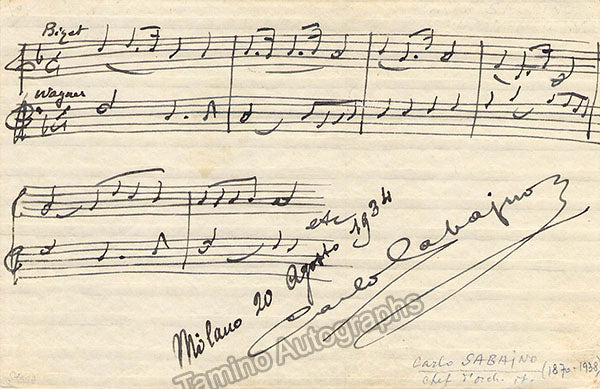 Bizet
Wagner
etc
Milano 20 Agosto 1934
Carlo Sabajno
Tamino Autographs
Carlo SABAJNO
chef d'orch. it. (1870-1938)